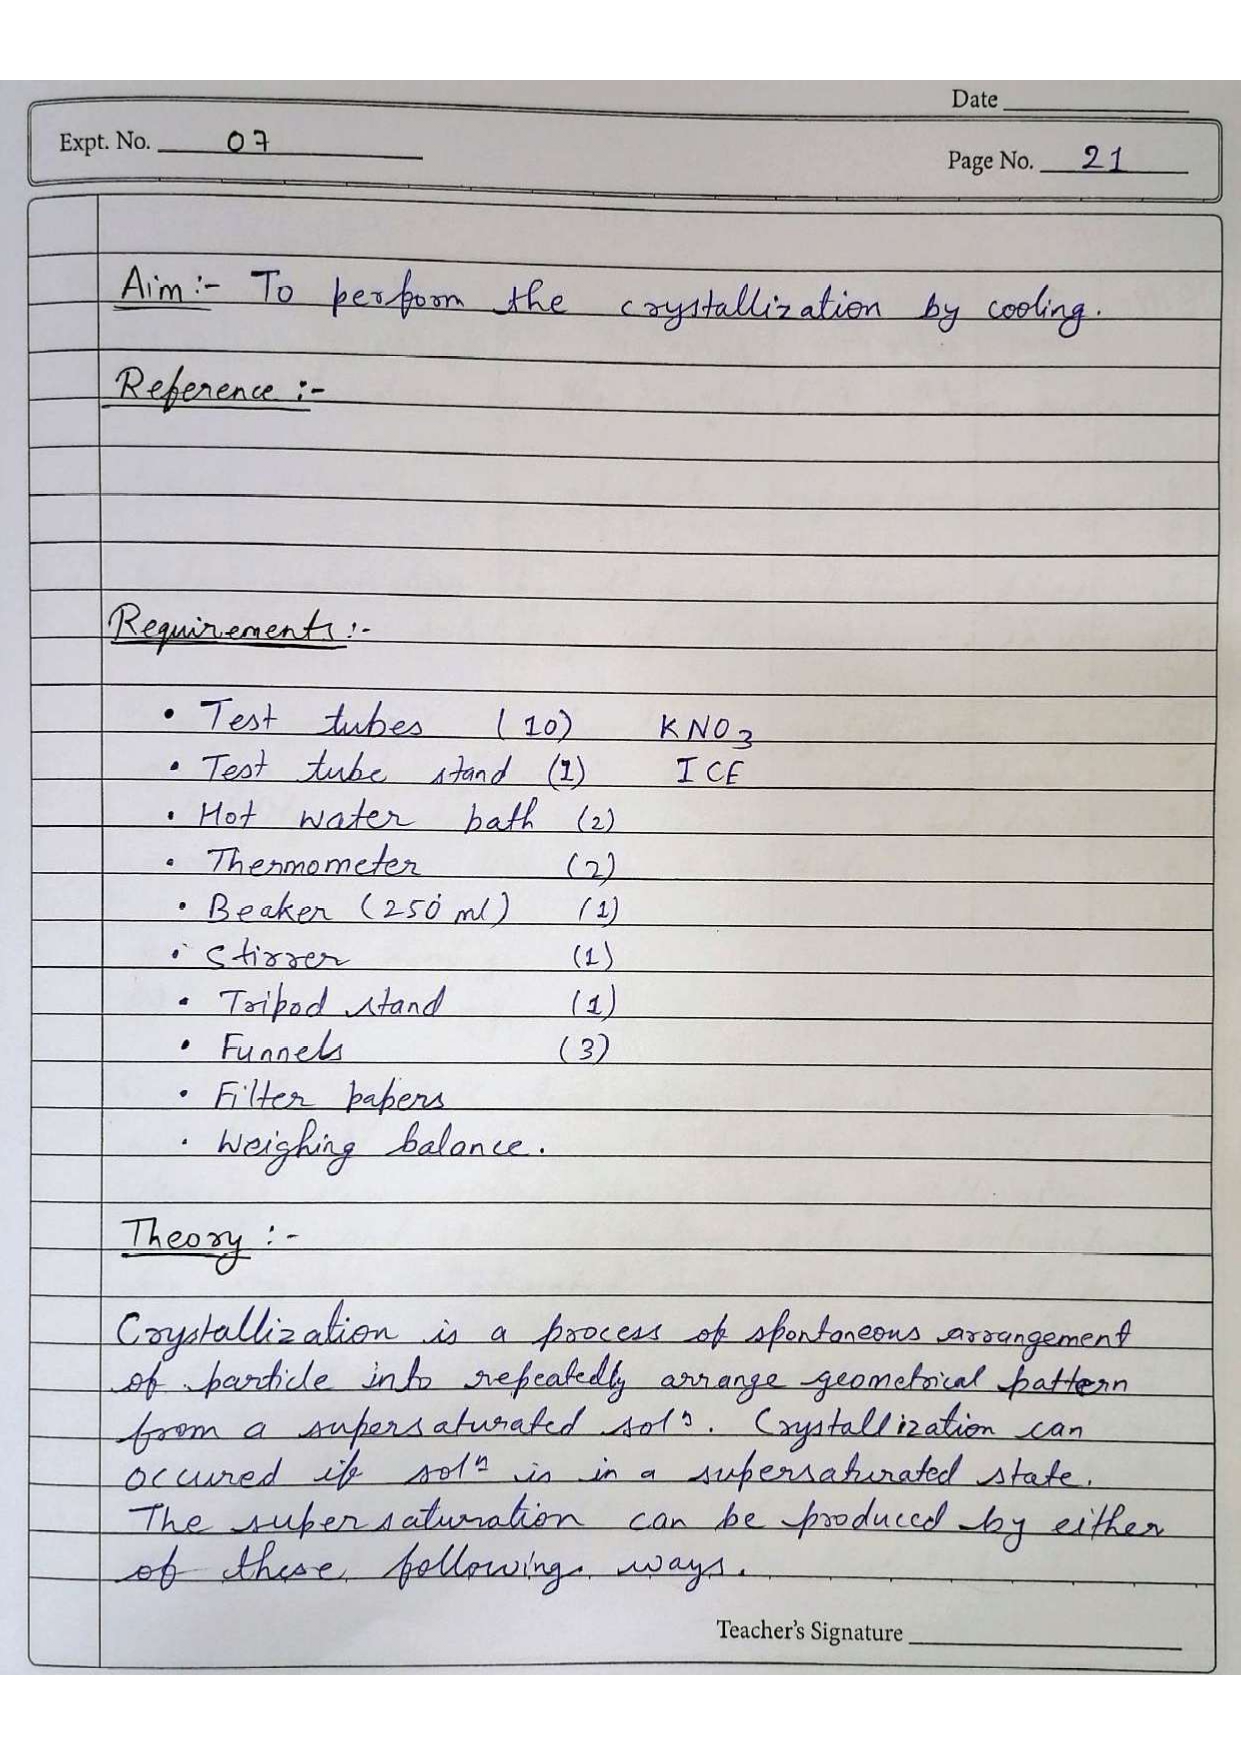 Date
Expt. No. 07
Page No. 21
Aim :- To perform the crystallization by cooling.
Reference :-
Requirements :-
• Test tubes (10) KNO3
• Test tube stand (1) ICE
• Hot water bath (2)
• Thermometer (2)
• Beaker (250 ml) (1)
• Stirrer (1)
• Tripod stand (1)
• Funnels (3)
• Filter papers
• Weighing balance.
Theory :-
Crystallization is a process of spontaneous arrangement
of particle into repeatedly arrange geometrical pattern
from a supersaturated solⁿ. Crystallization can
occured if solⁿ is in a supersaturated state.
The supersaturation can be produced by either
of these following ways.
Teacher's Signature